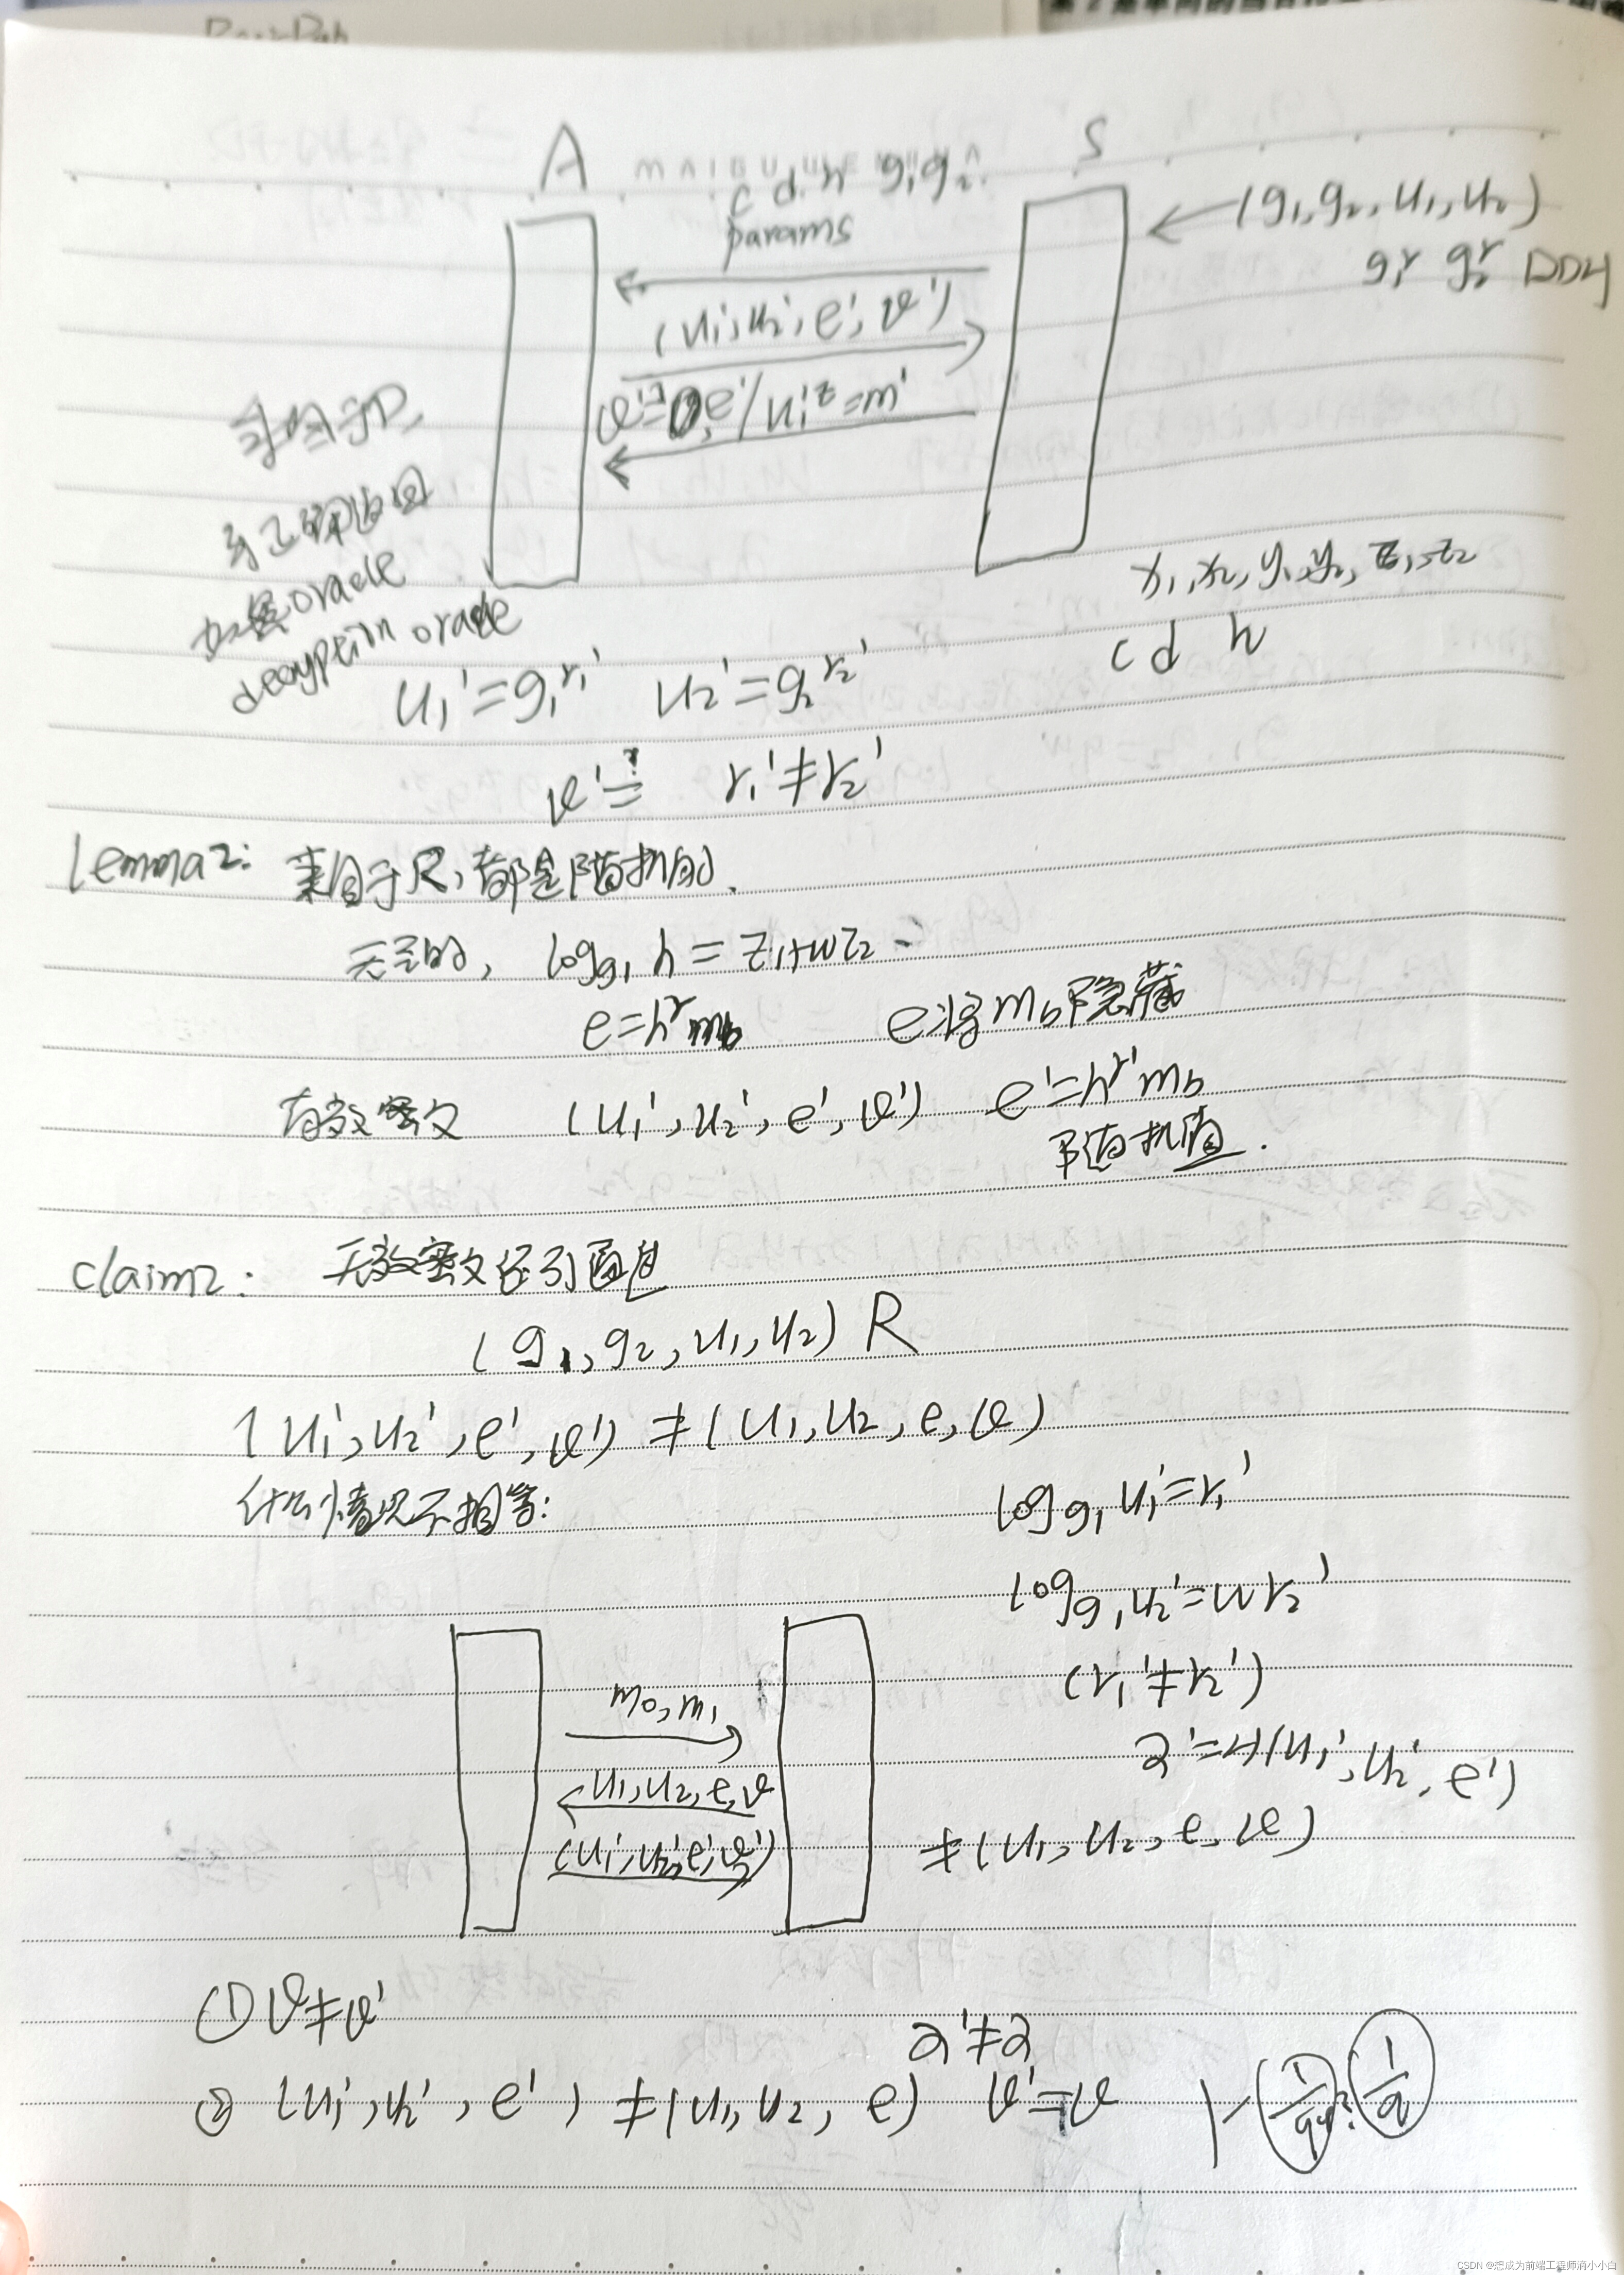 A
S
c d h g₁g₂
params
(g₁, g₂, u₁, u₂)
g₁ʳ g₂ʳ DDH
(u₁', u₂', e', v')
e'/u₁'ᶻ=m'
oracle
decryption oracle
x₁, x₂, y₁, y₂, z₁, z₂
c d h
u₁'=g₁^r₁' u₂'=g₂^r₂'
r₁'≠r₂'
lemma2: 来自于R,都是随机的.
log_g₁ h = z₁+wz₂
e=hʳm_b e将m_b隐藏
有效密文 (u₁', u₂', e', v') e'=h^r'm_b
随机值.
claim2: 无效密文
(g₁, g₂, u₁, u₂) R
(u₁', u₂', e', v') ≠ (u₁, u₂, e, v)
什么情况不相等:
log_g₁ u₁'=r₁'
log_g₁ u₂'=wr₂'
(r₁'≠r₂')
m₀, m₁
u₁, u₂, e, v
(u₁', u₂', e', v')
α'=H(u₁', u₂', e')
≠(u₁, u₂, e, v)
① v≠v'
α'≠α
② (u₁', u₂', e') ≠ (u₁, u₂, e) v'=v
CSDN @想成为前端工程师滴小小白